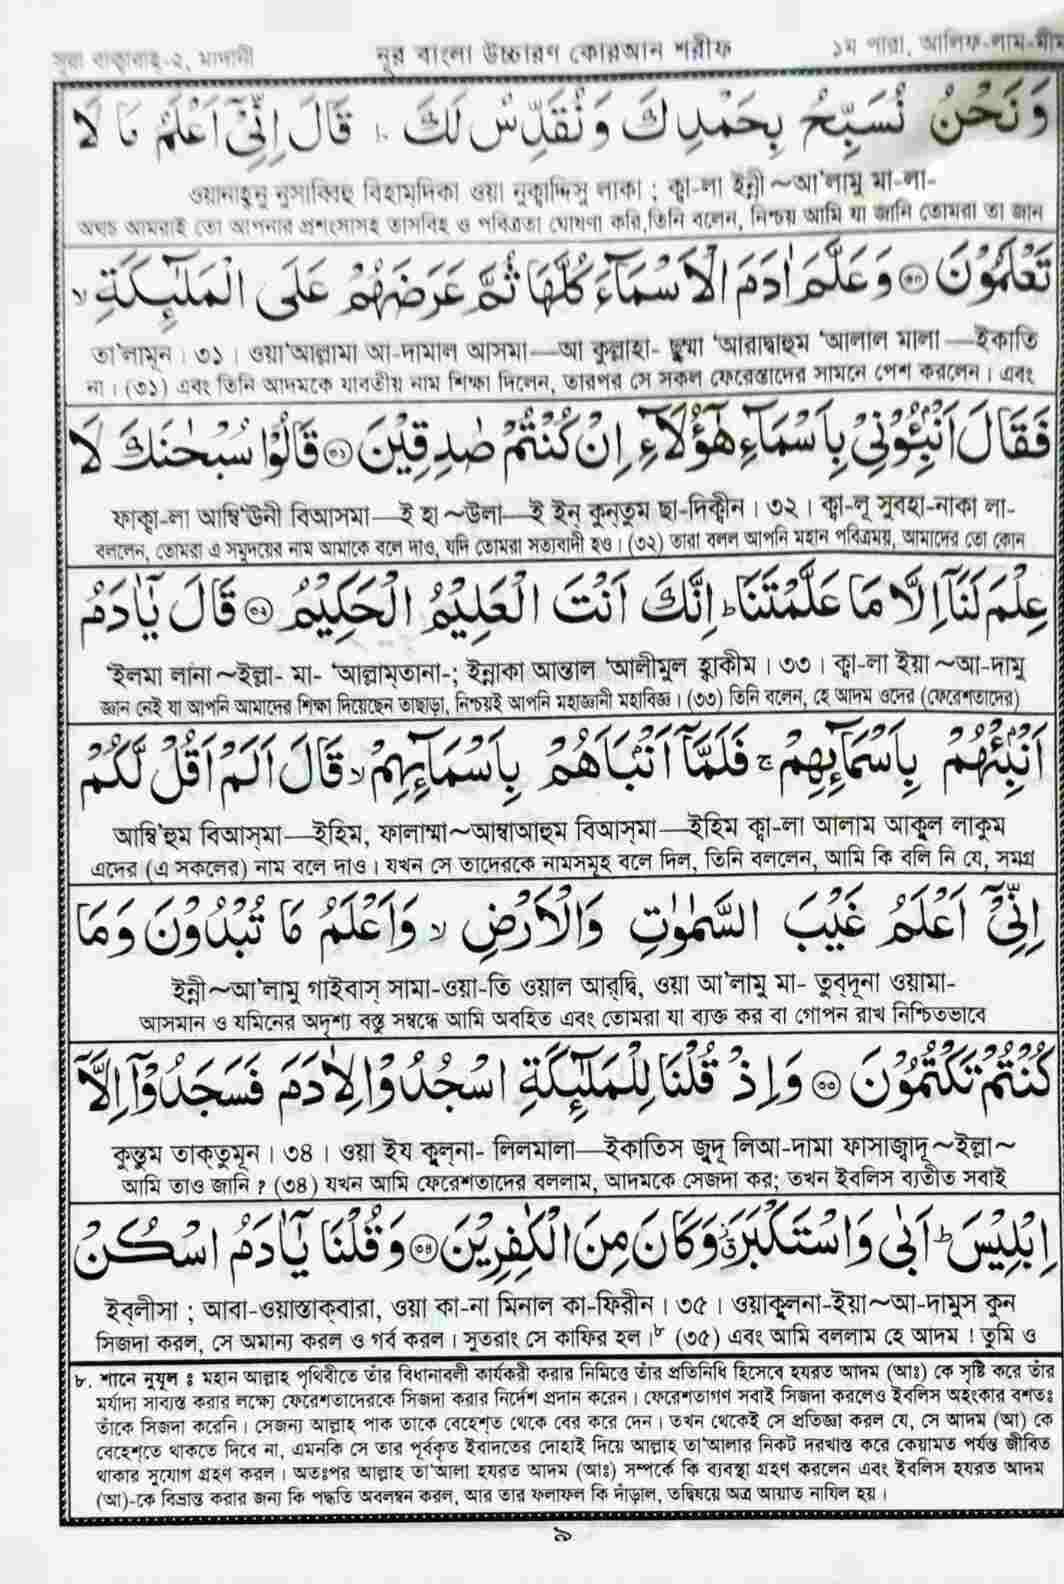 সূরা বাক্বারাহ্-২, মাদানী নূর বাংলা উচ্চারণ কোরআন শরীফ ১ম পারা, আলিফ-লাম-মীম
وَنَحْنُ نُسَبِّحُ بِحَمْدِكَ وَنُقَدِّسُ لَكَ ؕ قَالَ اِنِّىْٓ اَعْلَمُ مَا لَا
ওয়ানাহ্নু নুসাব্বিহু বিহাম্দিকা ওয়া নুক্বাদ্দিসু লাকা ; ক্বা-লা ইন্নী～আ'লামু মা-লা-
অথচ আমরাই তো আপনার প্রশংসাসহ তাসবিহ ও পবিত্রতা ঘোষণা করি,তিনি বলেন, নিশ্চয় আমি যা জানি তোমরা তা জান
تَعْلَمُوْنَ ﴿۳۰﴾ وَعَلَّمَ اٰدَمَ الْاَسْمَآءَ كُلَّهَا ثُمَّ عَرَضَهُمْ عَلَى الْمَلٰٓئِكَةِ ۙ
তা'লামূন । ৩১ । ওয়া'আল্লামা আ-দামাল আসমা—আ কুল্লাহা- ছুম্মা 'আরাদ্বাহুম 'আলাল মালা —ইকাতি
না । (৩১) এবং তিনি আদমকে যাবতীয় নাম শিক্ষা দিলেন, তারপর সে সকল ফেরেস্তাদের সামনে পেশ করলেন । এবং
فَقَالَ اَنْۢبِـُٔوْنِىْ بِاَسْمَآءِ هٰٓؤُلَآءِ اِنْ كُنْتُمْ صٰدِقِيْنَ ﴿۳۱﴾ قَالُوْا سُبْحٰنَكَ لَا
ফাক্বা-লা আম্বি'ঊনী বিআসমা—ই হা ～উলা—ই ইন্ কুন্তুম ছা-দিক্বীন । ৩২ । ক্বা-লূ সুবহা-নাকা লা-
বললেন, তোমরা এ সমুদয়ের নাম আমাকে বলে দাও, যদি তোমরা সত্যবাদী হও । (৩২) তারা বলল আপনি মহান পবিত্রময়, আমাদের তো কোন
عِلْمَ لَنَآ اِلَّا مَا عَلَّمْتَنَا ؕ اِنَّكَ اَنْتَ الْعَلِيْمُ الْحَكِيْمُ ﴿۳۲﴾ قَالَ يٰٓاٰدَمُ
'ইলমা লানা ～ইল্লা- মা- 'আল্লাম্তানা-; ইন্নাকা আন্তাল 'আলীমুল হাকীম । ৩৩ । ক্বা-লা ইয়া ～আ-দামু
জ্ঞান নেই যা আপনি আমাদের শিক্ষা দিয়েছেন তাছাড়া, নিশ্চয়ই আপনি মহাজ্ঞানী মহাবিজ্ঞ । (৩৩) তিনি বলেন, হে আদম ওদের (ফেরেশতাদের)
اَنْۢبِئْهُمْ بِاَسْمَآئِهِمْ ۚ فَلَمَّآ اَنْۢبَاَهُمْ بِاَسْمَآئِهِمْ ۙ قَالَ اَلَمْ اَقُلْ لَّكُمْ
আম্বি'হুম বিআস্মা—ইহিম, ফালাম্মা～আম্বাআহুম বিআস্মা—ইহিম ক্বা-লা আলাম আকুল লাকুম
এদের (এ সকলের) নাম বলে দাও । যখন সে তাদেরকে নামসমূহ বলে দিল, তিনি বললেন, আমি কি বলি নি যে, সমগ্র
اِنِّىْٓ اَعْلَمُ غَيْبَ السَّمٰوٰتِ وَالْاَرْضِ ۙ وَاَعْلَمُ مَا تُبْدُوْنَ وَمَا
ইন্নী～আ'লামু গাইবাস্ সামা-ওয়া-তি ওয়াল আর্দ্বি, ওয়া আ'লামু মা- তুব্দূনা ওয়ামা-
আসমান ও যমিনের অদৃশ্য বস্তু সম্বন্ধে আমি অবহিত এবং তোমরা যা ব্যক্ত কর বা গোপন রাখ নিশ্চিতভাবে
كُنْتُمْ تَكْتُمُوْنَ ﴿۳۳﴾ وَاِذْ قُلْنَا لِلْمَلٰٓئِكَةِ اسْجُدُوْا لِاٰدَمَ فَسَجَدُوْٓا اِلَّآ
কুন্তুম তাক্তুমূন । ৩৪ । ওয়া ইয কুল্না- লিলমালা—ইকাতিস জুদূ লিআ-দামা ফাসাজাদূ ～ইল্লা～
আমি তাও জানি ? (৩৪) যখন আমি ফেরেশতাদের বললাম, আদমকে সেজদা কর; তখন ইবলিস ব্যতীত সবাই
اِبْلِيْسَ ؕ اَبٰى وَاسْتَكْبَرَ ۗ وَكَانَ مِنَ الْكٰفِرِيْنَ ﴿۳۴﴾ وَقُلْنَا يٰٓاٰدَمُ اسْكُنْ
ইব্লীসা ; আবা-ওয়াস্তাক্বারা, ওয়া কা-না মিনাল কা-ফিরীন । ৩৫ । ওয়াকুলনা-ইয়া～আ-দামুস কুন
সিজদা করল, সে অমান্য করল ও গর্ব করল । সুতরাং সে কাফির হল ।৮ (৩৫) এবং আমি বললাম হে আদম ! তুমি ও
৮. শানে নুযূল ঃ মহান আল্লাহ পৃথিবীতে তাঁর বিধানাবলী কার্যকরী করার নিমিত্তে তাঁর প্রতিনিধি হিসেবে হযরত আদম (আঃ) কে সৃষ্টি করে তাঁর
মর্যাদা সাব্যস্ত করার লক্ষ্যে ফেরেশতাদেরকে সিজদা করার নির্দেশ প্রদান করেন । ফেরেশতাগণ সবাই সিজদা করলেও ইবলিস অহংকার বশতঃ
তাঁকে সিজদা করেনি । সেজন্য আল্লাহ পাক তাকে বেহেশ্ত থেকে বের করে দেন । তখন থেকেই সে প্রতিজ্ঞা করল যে, সে আদম (আ) কে
বেহেশ্তে থাকতে দিবে না, এমনকি সে তার পূর্বকৃত ইবাদতের দোহাই দিয়ে আল্লাহ তা'আলার নিকট দরখাস্ত করে কেয়ামত পর্যন্ত জীবিত
থাকার সুযোগ গ্রহণ করল । অতঃপর আল্লাহ তা'আলা হযরত আদম (আঃ) সম্পর্কে কি ব্যবস্থা গ্রহণ করলেন এবং ইবলিস হযরত আদম
(আ)-কে বিভ্রান্ত করার জন্য কি পদ্ধতি অবলম্বন করল, আর তার ফলাফল কি দাঁড়াল, তদ্বিষয়ে অত্র আয়াত নাযিল হয় ।
৯